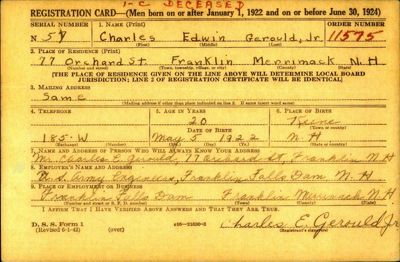 1-C DECEASED
REGISTRATION CARD—(Men born on or after January 1, 1922 and on or before June 30, 1924)
SERIAL NUMBER 1. NAME (Print) ORDER NUMBER
N 57 Charles Edwin Gerould, Jr. 11575
(First) (Middle) (Last)
2. PLACE OF RESIDENCE (Print)
77 Orchard St. Franklin Merrimack N.H
(Number and street) (Town, township, village, or city) (County) (State)
[THE PLACE OF RESIDENCE GIVEN ON THE LINE ABOVE WILL DETERMINE LOCAL BOARD
JURISDICTION; LINE 2 OF REGISTRATION CERTIFICATE WILL BE IDENTICAL]
3. MAILING ADDRESS
Same
(Mailing address if other than place indicated on line 2. If same insert word same)
4. TELEPHONE 5. AGE IN YEARS 6. PLACE OF BIRTH
20 Keene
DATE OF BIRTH (Town or county)
185-W May 5 1922 N.H
(Mo.) (Day) (Yr.) (State or country)
7. NAME AND ADDRESS OF PERSON WHO WILL ALWAYS KNOW YOUR ADDRESS
Mr. Charles E. Gerould, 77 Orchard St, Franklin N.H
8. EMPLOYER'S NAME AND ADDRESS
U.S. Army Engineers, Franklin Falls Dam N.H
9. PLACE OF EMPLOYMENT OR BUSINESS
Franklin Falls Dam Franklin Merrimack N.H
(Number and street or R. F. D. number) (Town) (County) (State)
I AFFIRM THAT I HAVE VERIFIED ABOVE ANSWERS AND THAT THEY ARE TRUE.
D. S. S. Form 1
(Revised 6-1-42) (over) 16—21630-2 Charles E. Gerould Jr
(Registrant's signature)